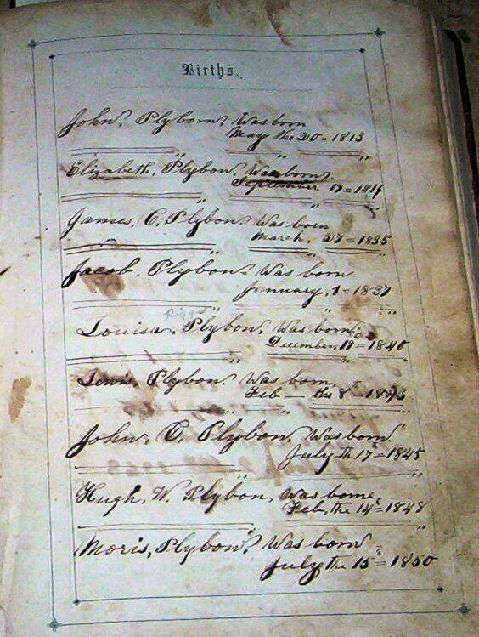 Births.
John, Plybon, Was born
May the 30 - 1813
Elizabeth, Plybon, Was born
September 17 - 1814
James, C. Plybon, Was born
March, 23 - 1835
Jacob, Plybon, Was born
January, 1 - 1837
Louisa, Plybon, Was born
December 11 - 1840
Lewis, Plybon Was born
Feb - the 8th - 1843
John, C. Plybon, Was born
July th 17 - 1845
Hugh, W. Plybon, Was borne
Feb, the 14th - 1848
Moris, Plybon, Was born
July the 15th - 1850